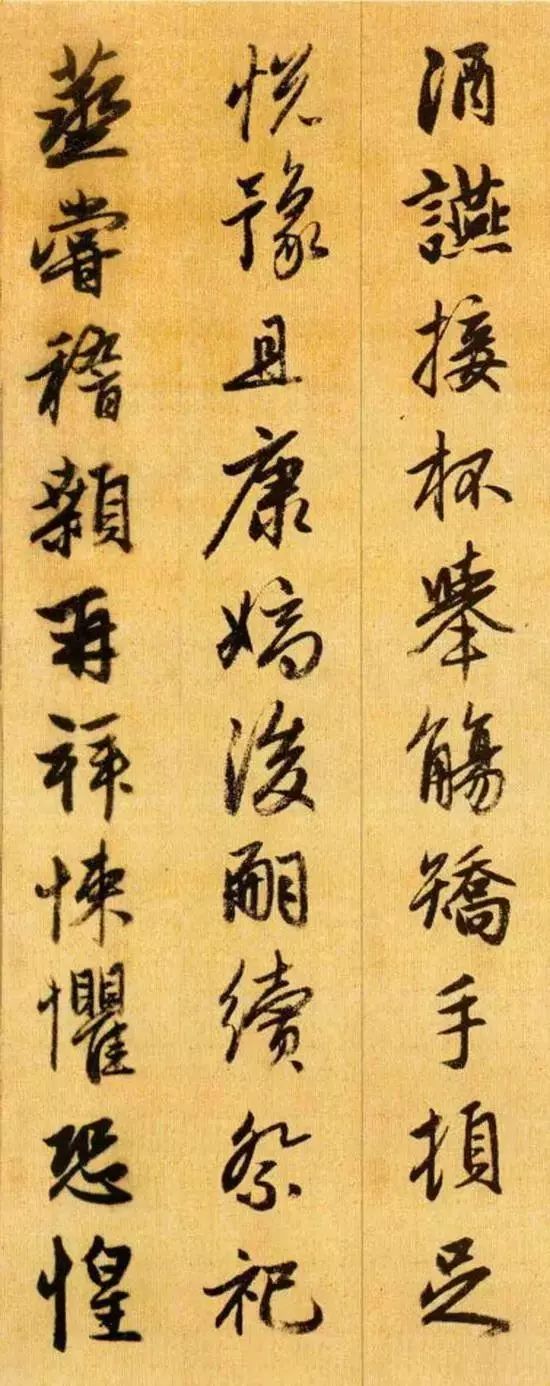 酒讌接杯舉觴矯手頓足
悅豫且康嫡後嗣續祭祀
蒸嘗稽顙再拜悚懼恐惶